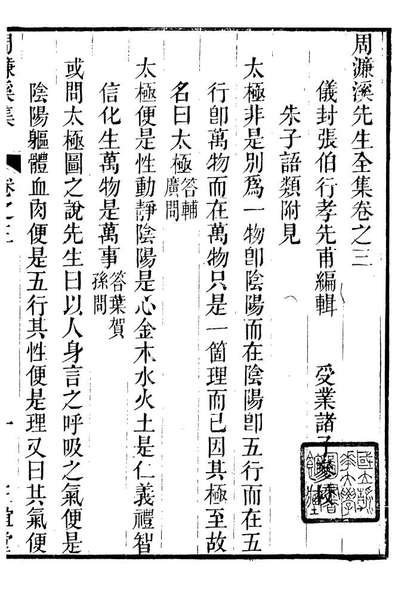 周濂溪先生全集卷之三
儀封張伯行孝先甫編輯　受業諸子
朱子語類附見
太極非是別爲一物卽陰陽而在陰陽卽五行而在五
行卽萬物而在萬物只是一箇理而已因其極至故
名曰太極答輔廣問
太極便是性動靜陰陽是心金木水火土是仁義禮智
信化生萬物是萬事答葉賀孫問
或問太極圖之說先生曰以人身言之呼吸之氣便是
陰陽軀體血肉便是五行其性便是理又曰其氣便
周濂溪集　卷之三　一　正誼堂